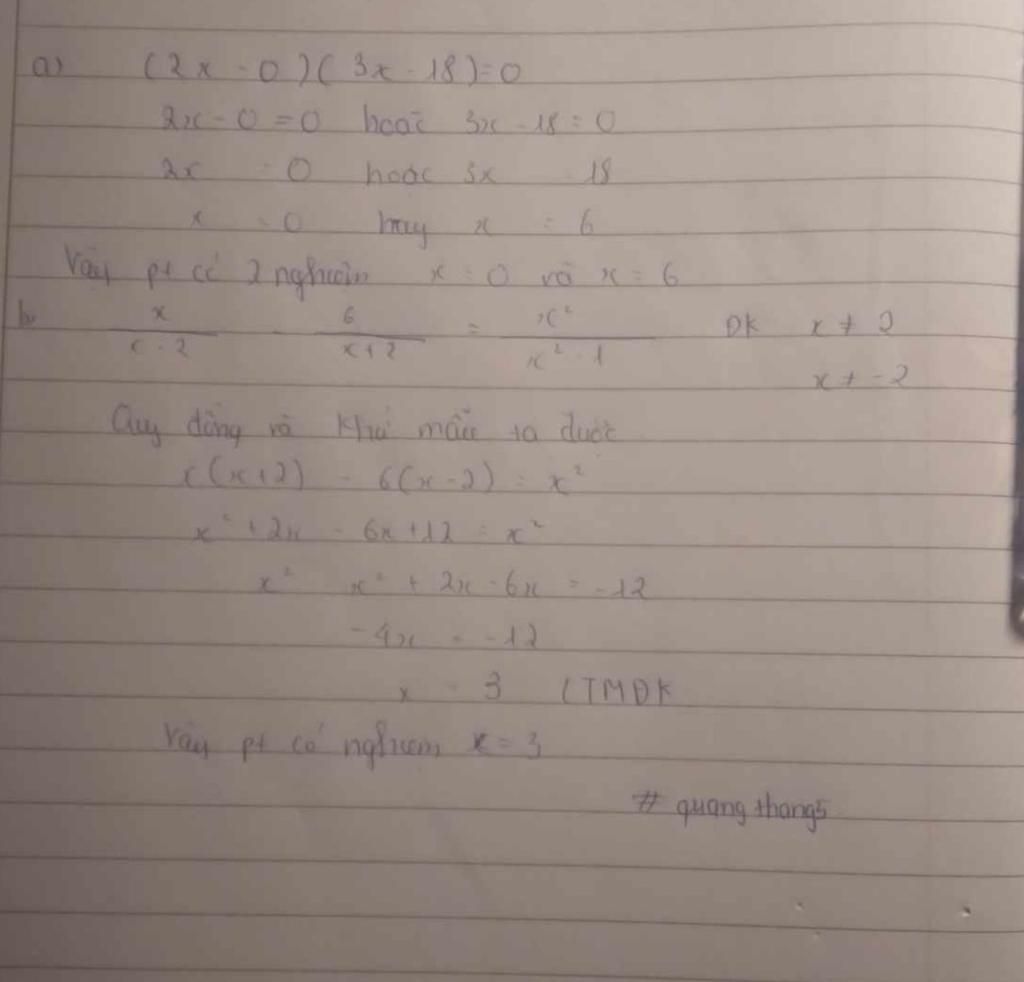 a) (2x - 0)(3x - 18) = 0
2x - 0 = 0 hoặc 3x - 18 = 0
2x = 0 hoặc 3x = 18
x = 0 hay x = 6
Vậy pt có 2 nghiệm x = 0 và x = 6
b, x/(x - 2) - 6/(x + 2) = x²/(x² - 1) ĐK x ≠ 2
x ≠ -2
Quy đồng và khử mẫu ta được
x(x+2) - 6(x-2) = x²
x² + 2x - 6x + 12 = x²
x² - x² + 2x - 6x = -12
-4x = -12
x = 3 (TMĐK
Vậy pt có nghiệm x = 3
# quangthang5